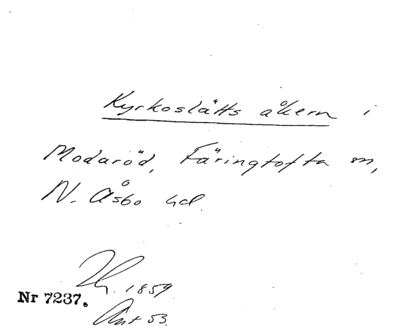 Kyrkoslätts åkern i
Modaröd, Färingtofta sn,
N. Åsbo hd.
1859
Nr 7237.
Ant 53